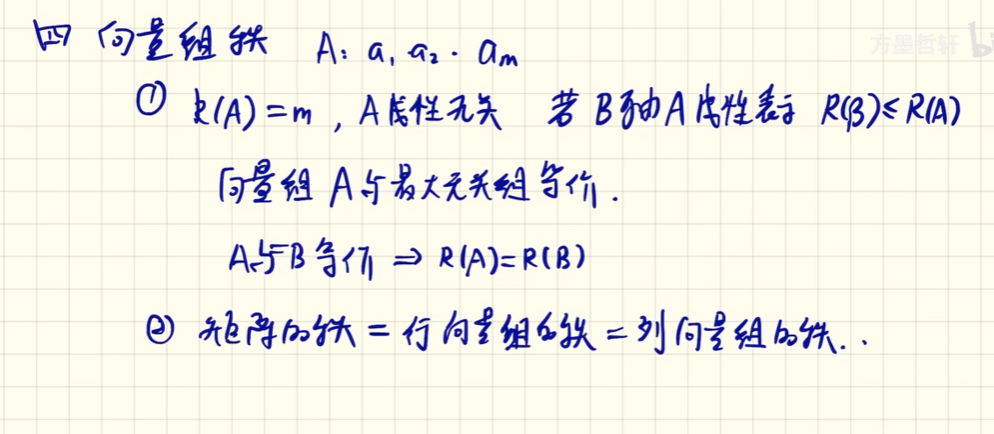 四 向量组秩 A: a₁ a₂ · aₘ
① R(A)=m , A线性无关 若B可由A线性表示 R(B)≤R(A)
向量组A与最大无关组等价.
A与B等价 ⇒ R(A)=R(B)
② 矩阵的秩=行向量组的秩=列向量组的秩..
方星哲轩 bi